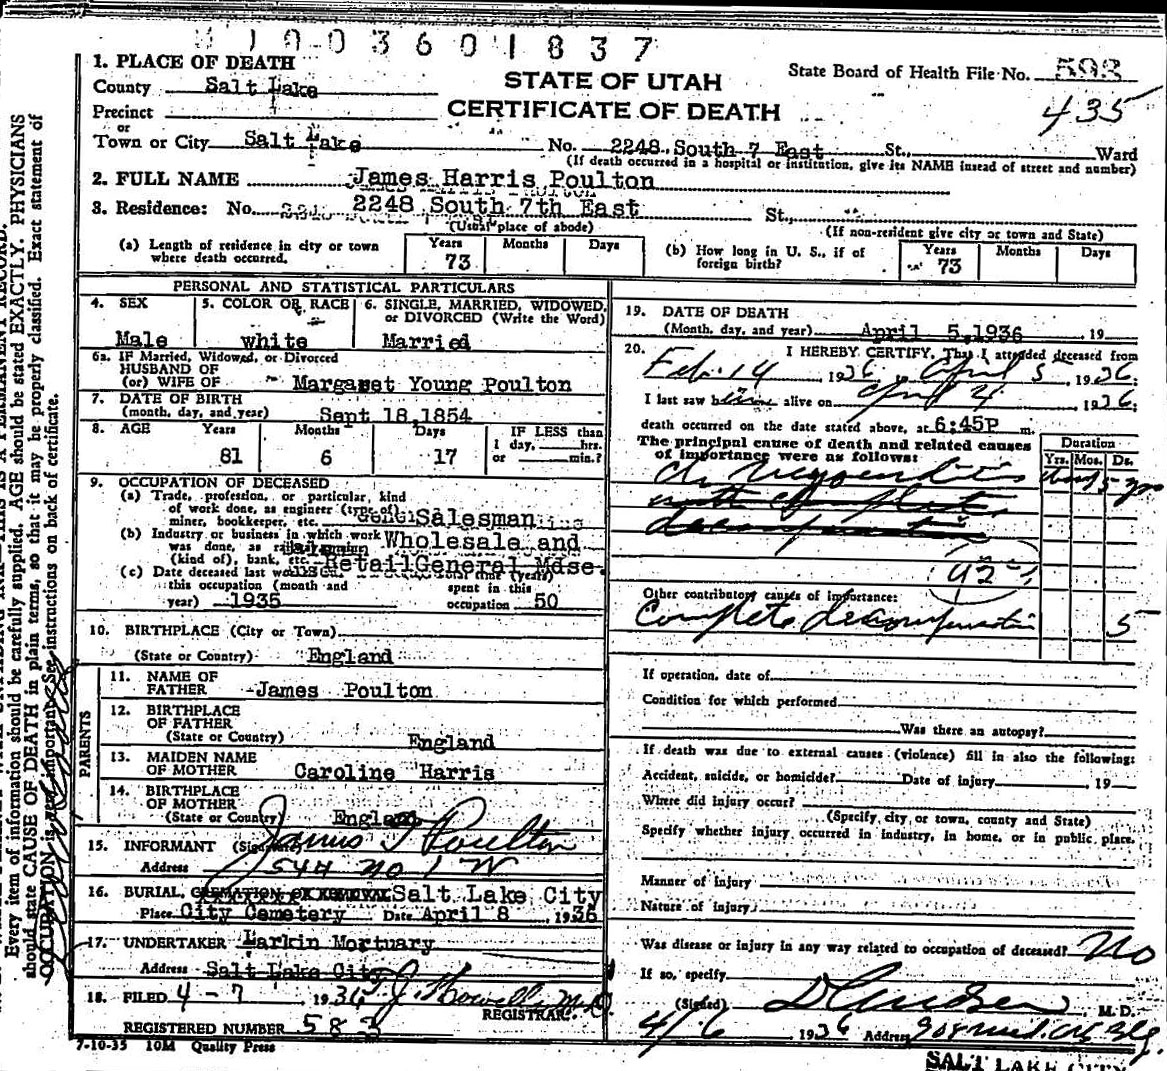 1003601837
1. PLACE OF DEATH
STATE OF UTAH
CERTIFICATE OF DEATH
State Board of Health File No. 593
435
County Salt Lake
Precinct
or
Town or City Salt Lake No. 2248 South 7 East St., Ward
(If death occurred in a hospital or institution, give its NAME instead of street and number)
2. FULL NAME James Harris Poulton
3. Residence: No. 2248 South 7th East St.,
(Usual place of abode) (If non-resident give city or town and State)
(a) Length of residence in city or town where death occurred. Years 73 Months Days
(b) How long in U. S., if of foreign birth? Years 73 Months Days
PERSONAL AND STATISTICAL PARTICULARS
4. SEX Male
5. COLOR OR RACE white
6. SINGLE, MARRIED, WIDOWED, or DIVORCED (Write the Word) Married
6a. IF Married, Widowed, or Divorced
HUSBAND OF
(or) WIFE OF Margaret Young Poulton
7. DATE OF BIRTH
(month, day, and year) Sept 18,1854
8. AGE Years 81 Months 6 Days 17 IF LESS than 1 day, hrs. or min.?
9. OCCUPATION OF DECEASED
(a) Trade, profession, or particular, kind
of work done, as engineer (type of)
miner, bookkeeper, etc. Salesman
(b) Industry or business in which work Wholesale and
was done, as
(kind of), bank, etc. Retail General Mdse.
(c) Date deceased last
this occupation (month and
year) 1935
time (years)
spent in this
occupation 50
10. BIRTHPLACE (City or Town)
(State or Country) England
PARENTS
11. NAME OF
FATHER James Poulton
12. BIRTHPLACE
OF FATHER
(State or Country) England
13. MAIDEN NAME
OF MOTHER Caroline Harris
14. BIRTHPLACE
OF MOTHER
(State or Country) England
15. INFORMANT James T Poulton
Address 544 No 1 W
16. BURIAL, CREMATION OR REMOVAL Salt Lake City
Place City Cemetery Date April 8, 1936
17. UNDERTAKER Larkin Mortuary
Address Salt Lake City
18. FILED 4-7, 1936
REGISTRAR.
REGISTERED NUMBER 583
7-10-35 10M Quality Press
19. DATE OF DEATH
(Month, day, and year) April 5,1936, 19
20. I HEREBY CERTIFY, That I attended deceased from
Feb. 14 1936 to April 5, 1936.
I last saw him alive on April 4 1936.
death occurred on the date stated above, at 6:45P m.
The principal cause of death and related causes
of importance were as follows:
Duration
Yrs. Mos. Ds.
92
Other contributory causes of importance:
Complete decompensation 5
If operation, date of
Condition for which performed
Was there an autopsy?
If death was due to external causes (violence) fill in also the following:
Accident, suicide, or homicide? Date of injury 19
Where did injury occur?
(Specify city or town, county and State)
Specify whether injury occurred in industry, in home, or in public place.
Manner of injury
Nature of injury
Was disease or injury in any way related to occupation of deceased? No
If so, specify
(Signed) M. D.
4/6 1936 Address
SALT LAKE CITY
Every item of information should be carefully supplied. AGE should be stated EXACTLY. PHYSICIANS
should state CAUSE OF DEATH in plain terms, so that it may be properly classified. Exact statement of
OCCUPATION is very important. See instructions on back of certificate.